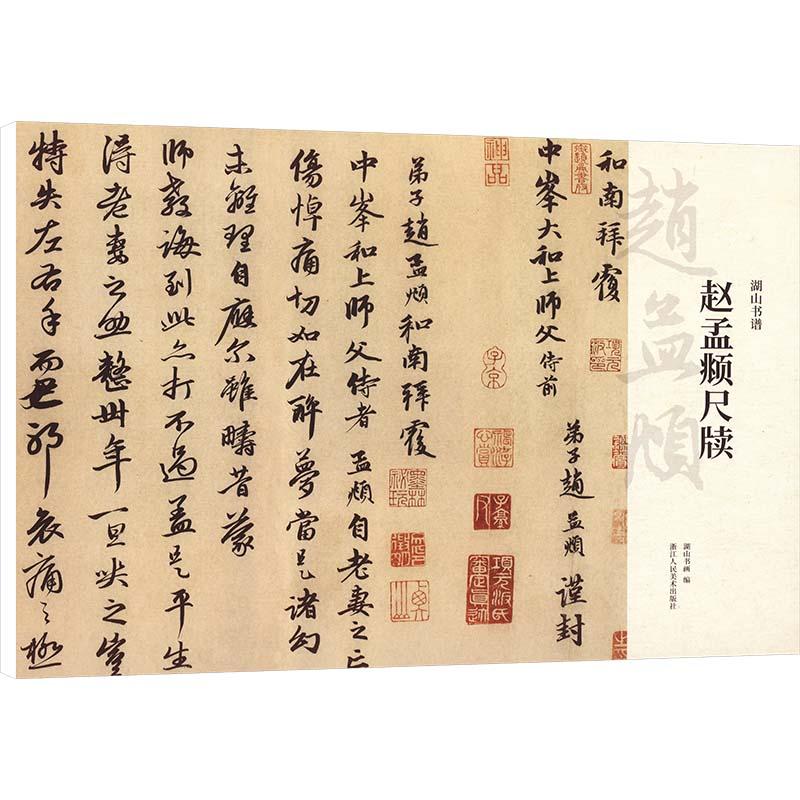 湖山书谱
赵孟𫖯尺牍
湖山书画 编
浙江人民美术出版社
趙孟頫
和南拜覆
中峯大和上師父侍前
弟子趙孟頫謹封
神品
子京
項元汴印
項元汴氏審定真迹
弟子趙孟頫和南拜覆
墨林祕玩
中峯和上師父侍者孟頫自老妻之亡
傷悼痛切如在醉夢當是諸幻
未離理自應尔雖疇昔蒙
師教誨到此亦打不過盖是平生
得老妻之助整卅年一旦哭之豈
特失左右手而已耶哀痛之極